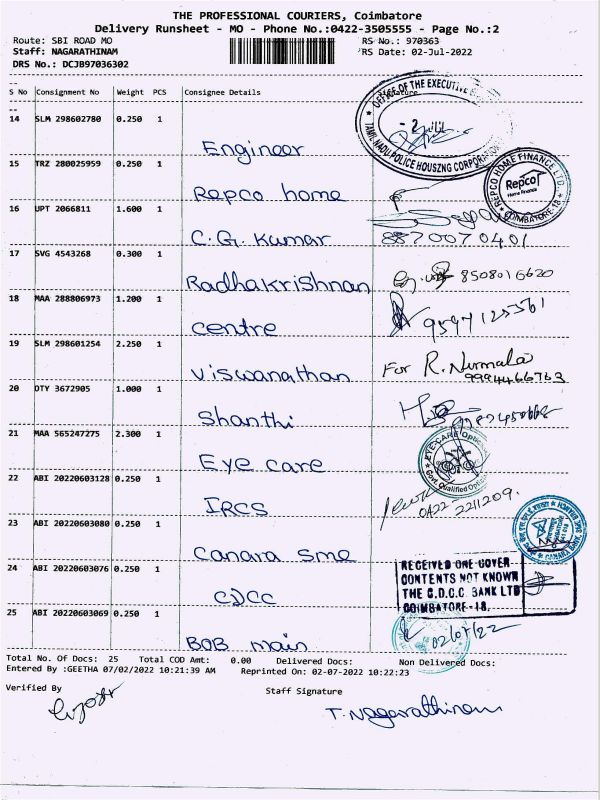 THE PROFESSIONAL COURIERS, Coimbatore
Delivery Runsheet - MO - Phone No.:0422-3505555 - Page No.:2
Route: SBI ROAD MO
RS No.: 970363
Staff: NAGARATHINAM
RS Date: 02-Jul-2022
DRS No.: DCJB97036302
S No Consignment No Weight PCS Consignee Details
14 SLM 298602780 0.250 1
OFFICE OF THE EXECUTIVE
TAMIL NADU POLICE HOUSZNG CORPORATION
Engineer
15 TRZ 280025959 0.250 1
REPCO HOME FINANCE LTD.
Repco
Home Finance
COIMBATORE-18
Repco home
16 UPT 2066811 1.600 1
C.G. Kumar 8870070401
17 SVG 4543268 0.300 1
Radhakrishnan 8508016620
18 MAA 288806973 1.200 1
centre
19 SLM 298601254 2.250 1
Viswanathan For R. Nirmala
9994466763
20 DTY 3672905 1.000 1
Shanthi
21 MAA 565247275 2.300 1
EYE CARE Opticals
Govt. Qualified
Eye care
22 ABI 20220603128 0.250 1
IRCS 0422 2211209.
23 ABI 20220603080 0.250 1
Canara sme
24 ABI 20220603076 0.250 1
RECEIVED ONE COVER
CONTENTS NOT KNOWN
THE C.D.C.C. BANK LTD
COIMBATORE-18.
CDCC
25 ABI 20220603069 0.250 1
02/07/22
BOB main
Total No. Of Docs: 25 Total COD Amt: 0.00 Delivered Docs: Non Delivered Docs:
Entered By :GEETHA 07/02/2022 10:21:39 AM Reprinted On: 02-07-2022 10:22:23
Verified By Staff Signature
T. Nagarathinam